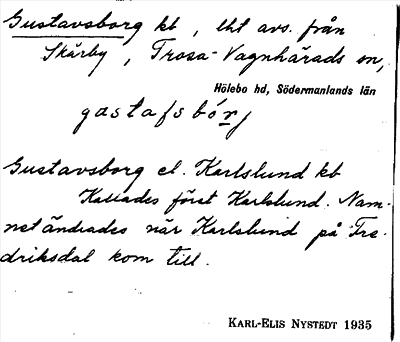 Gustavsborg kb, lht avs. från
Skärby, Trosa-Vagnhärads sn,
Hölebo hd, Södermanlands län
gastafsbórj
Gustavsborg el. Karlslund kb
Kallades först Karlslund. Nam-
net ändrades när Karlslund på Fre-
driksdal kom till.
KARL-ELIS NYSTEDT 1935